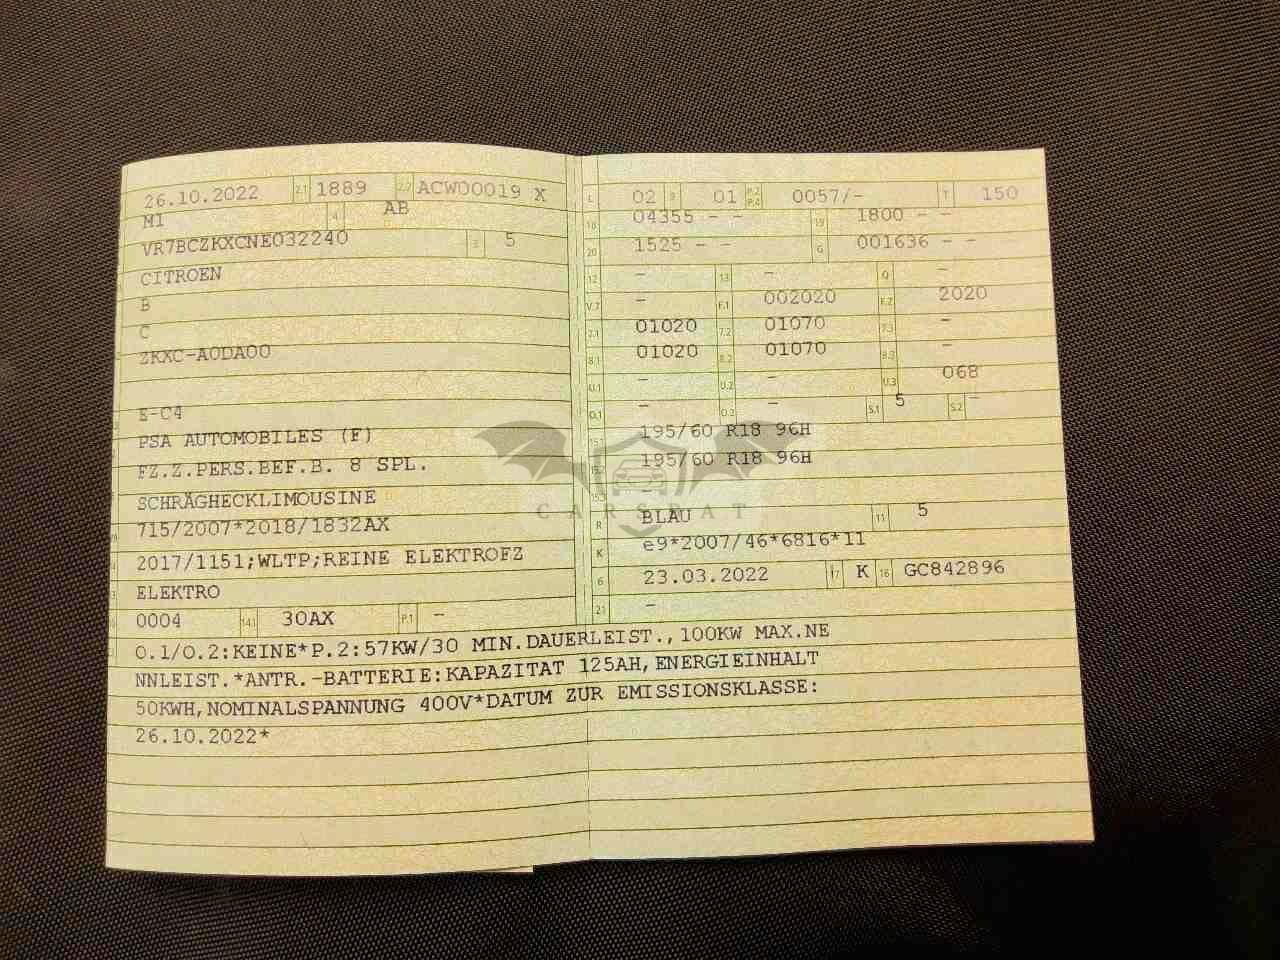 26.10.2022 2.1 1889 2.2 ACW00019 X
M1 4 AB
VR7BCZKXCNE032240 3 5
CITROEN
B
C
ZKXC-A0DA00
E-C4
PSA AUTOMOBILES (F)
FZ.Z.PERS.BEF.B. 8 SPL.
SCHRÄGHECKLIMOUSINE
715/2007*2018/1832AX
2017/1151;WLTP;REINE ELEKTROFZ
ELEKTRO
0004 14.1 30AX P.1 -
L 02 9 01 P.2 P.4 0057/- T 150
18 04355 - - 19 1800 - -
20 1525 - - G 001636 - -
12 - 13 - Q -
V.7 - F.1 002020 F.2 2020
7.1 01020 7.2 01070 7.3 -
8.1 01020 8.2 01070 8.3 -
U.1 - U.2 - U.3 068
O.1 - O.2 - S.1 5 S.2 -
15.1 195/60 R18 96H
15.2 195/60 R18 96H
15.3 -
CARSBAT
R BLAU 11 5
K e9*2007/46*6816*11
6 23.03.2022 17 K 16 GC842896
21 -
O.1/O.2:KEINE*P.2:57KW/30 MIN.DAUERLEIST.,100KW MAX.NE
NNLEIST.*ANTR.-BATTERIE:KAPAZITAT 125AH,ENERGIEINHALT
50KWH,NOMINALSPANNUNG 400V*DATUM ZUR EMISSIONSKLASSE:
26.10.2022*